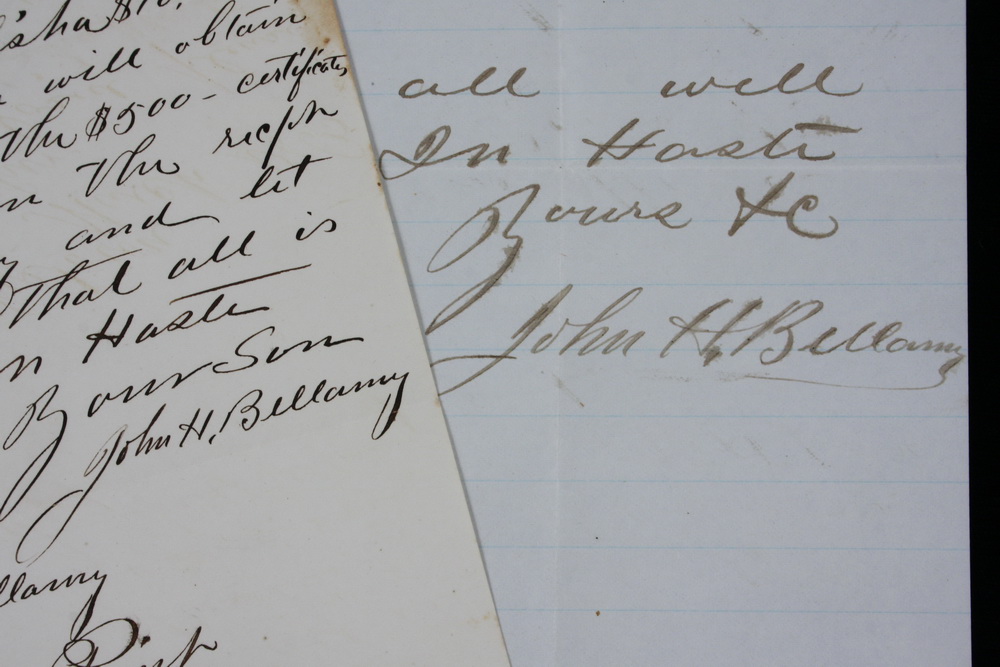 will obtain
The $500 - certificates
The recpt
and let
that all is
Haste
Your Son
John H. Bellamy
all well
In Haste
Yours &c
John H. Bellamy